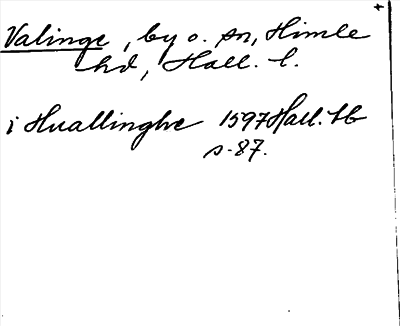 Valinge, by o. sn, Himle
hd, Hall. l.
i Huallinghe 1597 Hall. tb
s. 87.